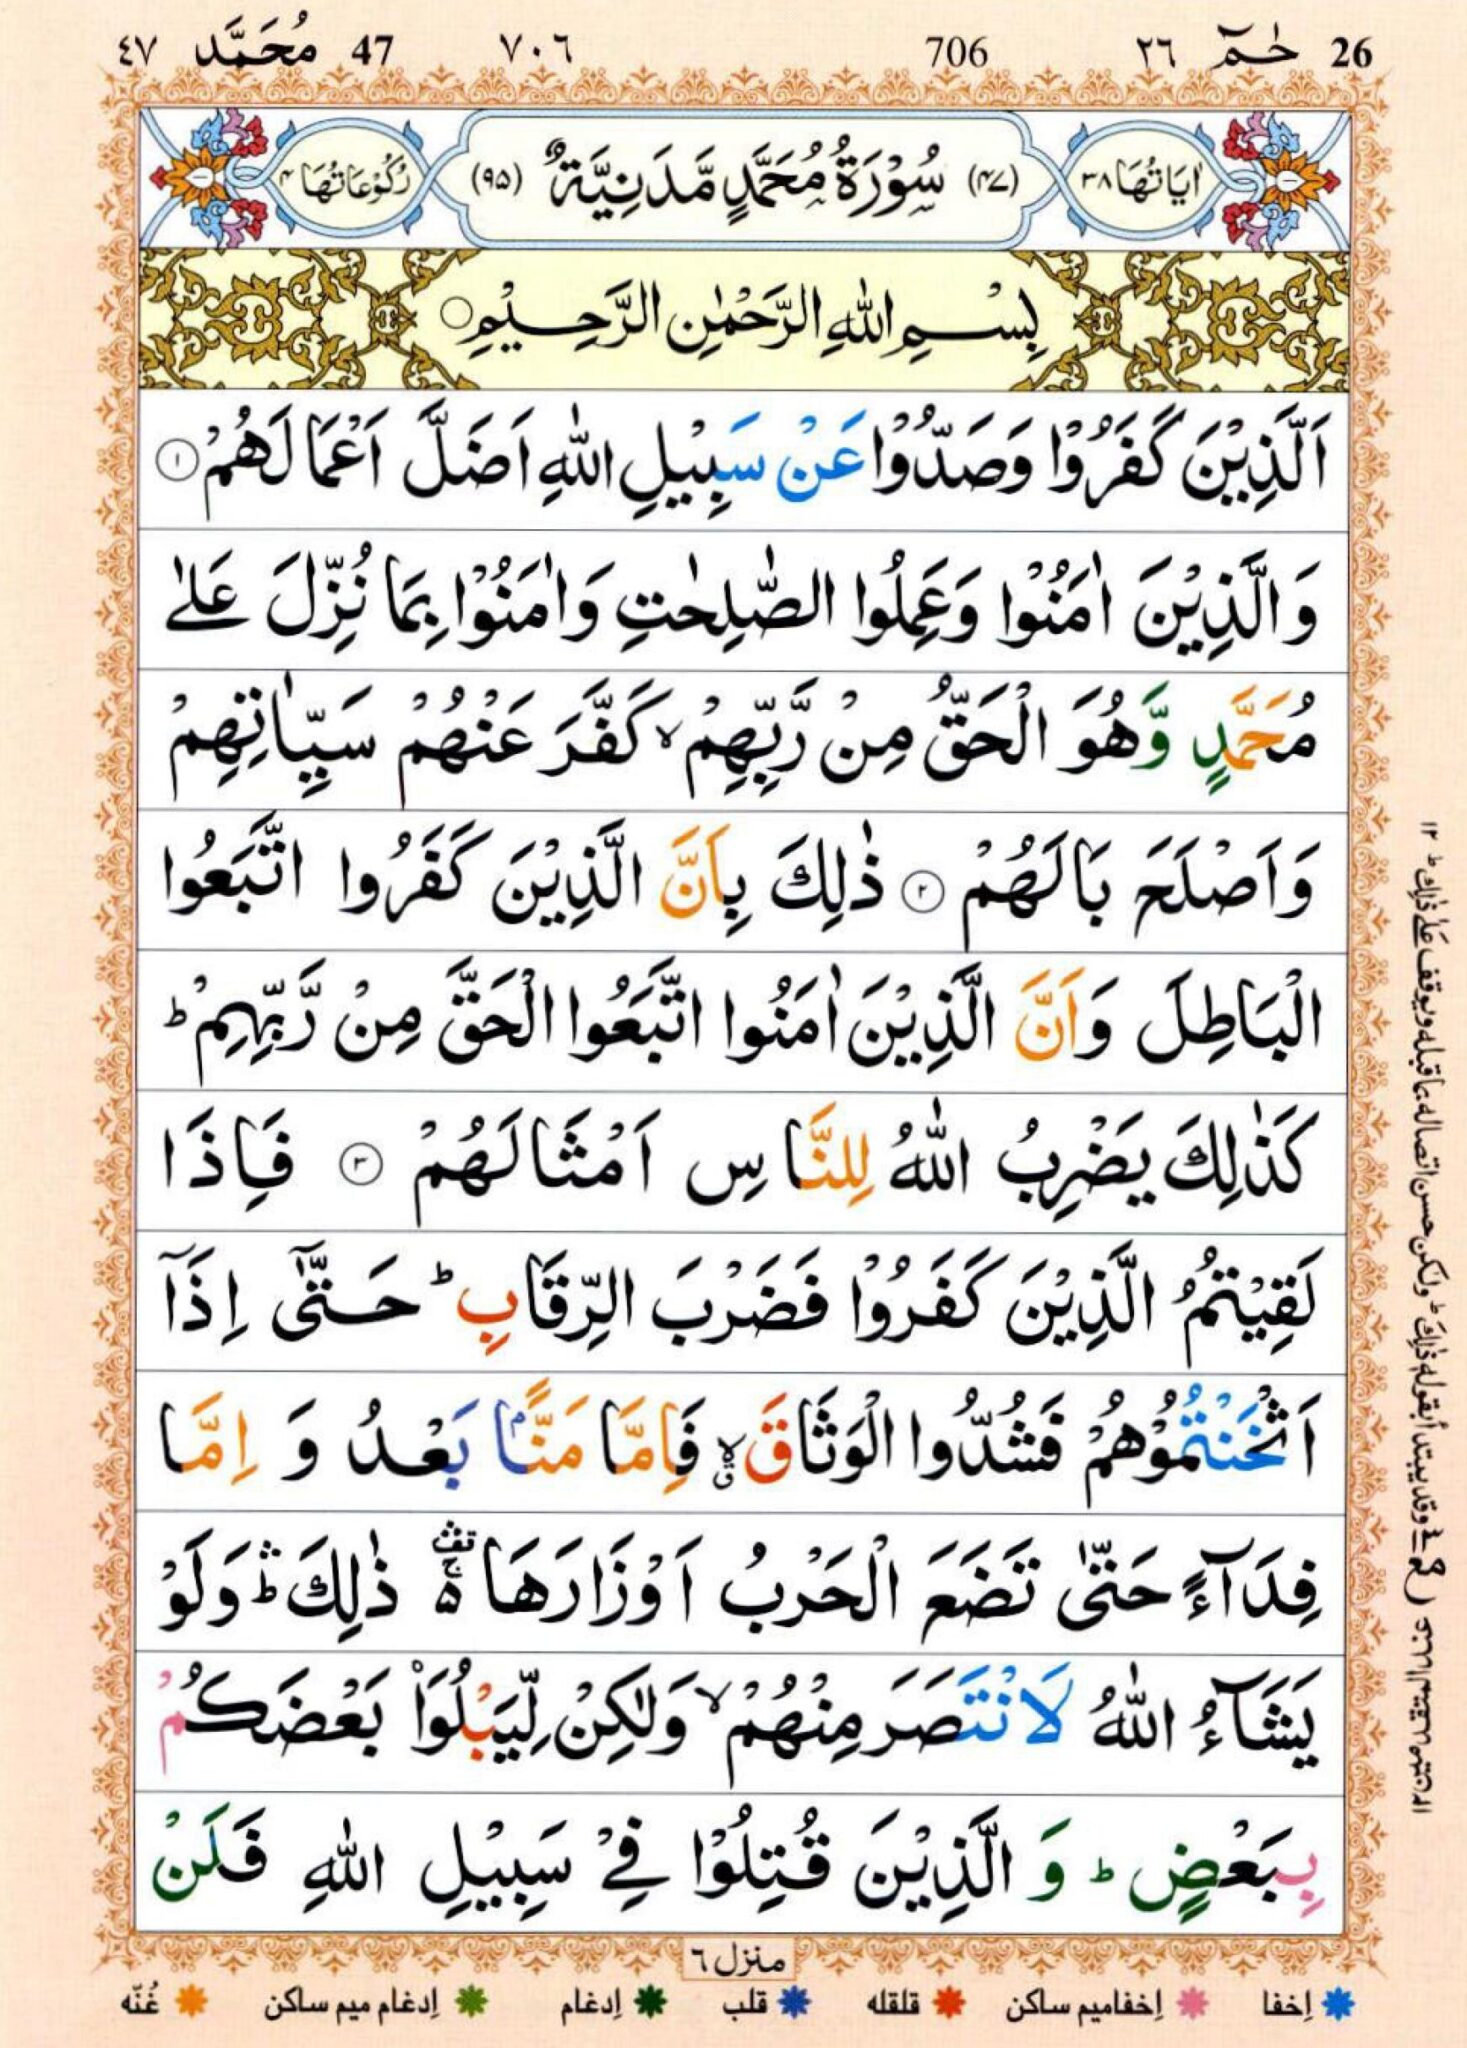 26 حٰمٓ ٢٦ 706 ٧٠٦ 47 مُحَمَّد ٤٧
اٰیَاتُهَا ٣٨ (٤٧) سُوْرَةُ مُحَمَّدٍ مَّدَنِیَّةٌ (٩٥) رُكُوْعَاتُهَا ٤
بِسْمِ اللّٰهِ الرَّحْمٰنِ الرَّحِیْمِ
اَلَّذِیْنَ كَفَرُوْا وَصَدُّوْا عَنْ سَبِیْلِ اللّٰهِ اَضَلَّ اَعْمَالَهُمْ ١
وَالَّذِیْنَ اٰمَنُوْا وَعَمِلُوا الصّٰلِحٰتِ وَاٰمَنُوْا بِمَا نُزِّلَ عَلٰی
مُحَمَّدٍ وَّهُوَ الْحَقُّ مِنْ رَّبِّهِمْ ۙ كَفَّرَ عَنْهُمْ سَیِّاٰتِهِمْ
وَاَصْلَحَ بَالَهُمْ ٢ ذٰلِكَ بِاَنَّ الَّذِیْنَ كَفَرُوا اتَّبَعُوا
الْبَاطِلَ وَاَنَّ الَّذِیْنَ اٰمَنُوا اتَّبَعُوا الْحَقَّ مِنْ رَّبِّهِمْ ؕ
كَذٰلِكَ یَضْرِبُ اللّٰهُ لِلنَّاسِ اَمْثَالَهُمْ ٣ فَاِذَا
لَقِیْتُمُ الَّذِیْنَ كَفَرُوْا فَضَرْبَ الرِّقَابِ ؕ حَتّٰۤی اِذَاۤ
اَثْخَنْتُمُوْهُمْ فَشُدُّوا الْوَثَاقَ ۙ ق فَاِمَّا مَنًّۢا بَعْدُ وَ اِمَّا
فِدَآءً حَتّٰی تَضَعَ الْحَرْبُ اَوْزَارَهَا ذٰلِكَ ؕ وَلَوْ
یَشَآءُ اللّٰهُ لَانْتَصَرَ مِنْهُمْ ۙ وَلٰكِنْ لِّیَبْلُوَا۠ بَعْضَكُمْ
بِبَعْضٍ ؕ وَ الَّذِیْنَ قُتِلُوْا فِیْ سَبِیْلِ اللّٰهِ فَلَنْ
منزل ٦
اِخفا اِخفامیم ساكن قلقله قلب اِدغام اِدغام میم ساكن غُنّه